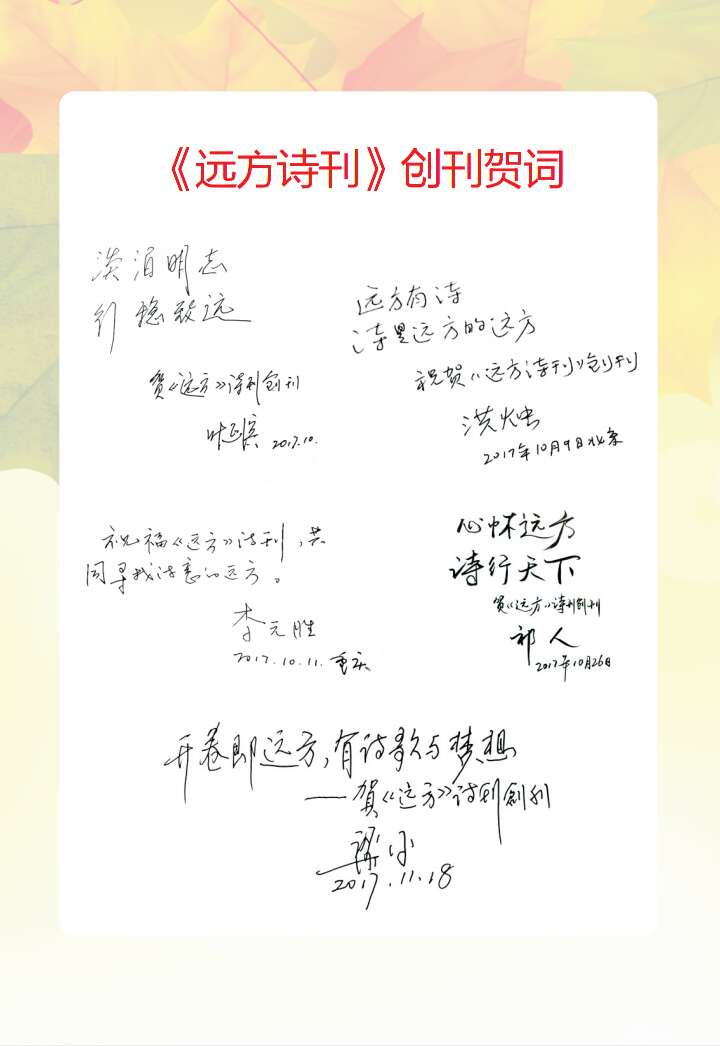 《远方诗刊》创刊贺词
淡泊明志
行稳致远
贺《远方》诗刊创刊
叶延滨 2017.10.
远方有诗
诗是远方的远方
祝贺《远方诗刊》创刊
洪烛
2017年10月9日北京
祝福《远方》诗刊,共
同寻找诗意的远方。
李元胜
2017.10.11.重庆
心怀远方
诗行天下
贺《远方》诗刊创刊
祁人
2017年10月26日
开卷即远方,有诗歌与梦想
——贺《远方》诗刊創刊
梁小
2017.11.18